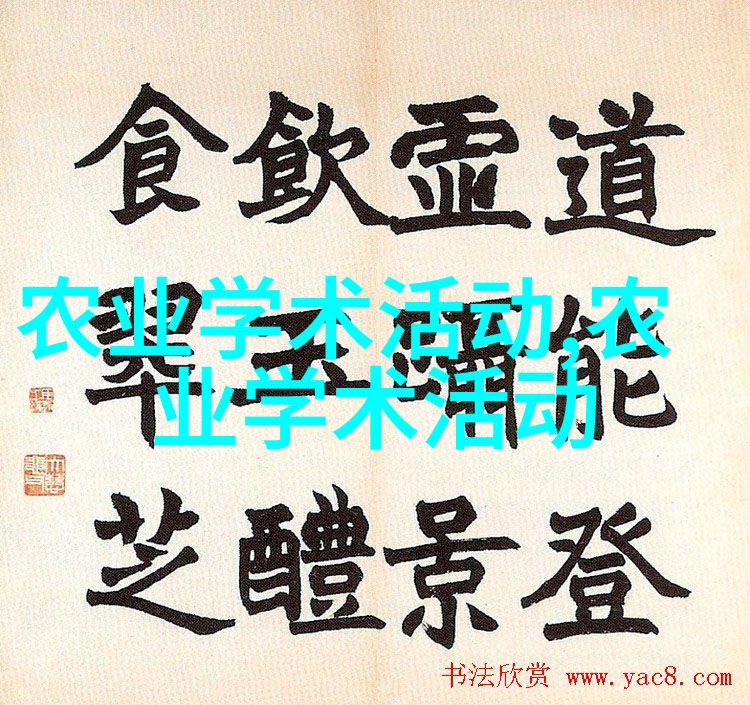 道能登
景
飲玉醴
食翠芝
农业学术活动,农
业学术活动
书法欣赏 www.yac8.com